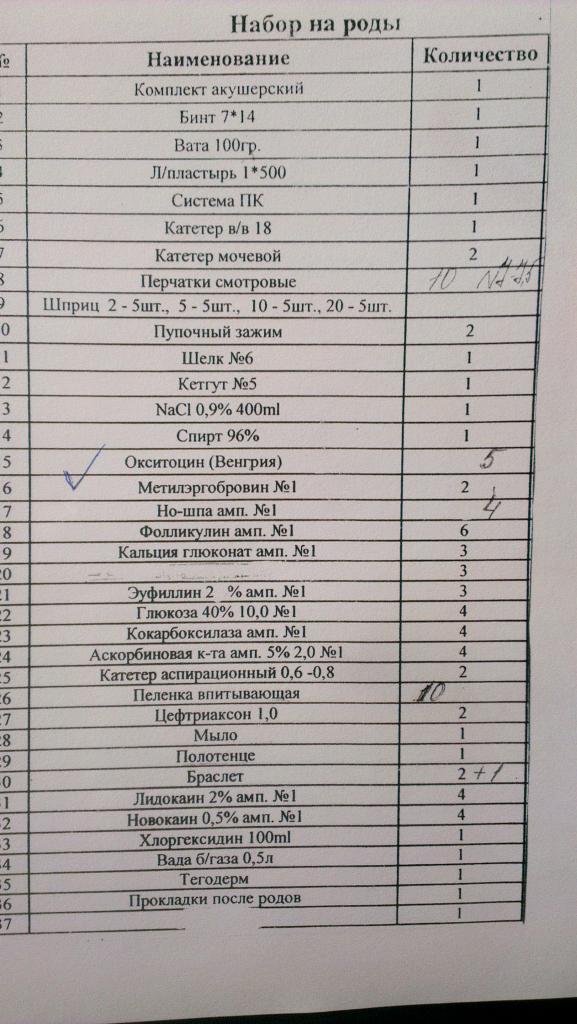 Набор на роды
№ Наименование Количество
Комплект акушерский 1
2 Бинт 7*14 1
3 Вата 100гр. 1
4 Л/пластырь 1*500 1
5 Система ПК 1
6 Катетер в/в 18 1
7 Катетер мочевой 2
8 Перчатки смотровые 10 №7-7,5
9 Шприц 2 - 5шт., 5 - 5шт., 10 - 5шт., 20 - 5шт.
0 Пупочный зажим 2
1 Шелк №6 1
2 Кетгут №5 1
3 NaCl 0,9% 400ml 1
4 Спирт 96% 1
5 Окситоцин (Венгрия) 5
6 Метилэргобровин №1 2
7 Но-шпа амп. №1 4
8 Фолликулин амп. №1 6
9 Кальция глюконат амп. №1 3
20 3
21 Эуфиллин 2 % амп. №1 3
22 Глюкоза 40% 10,0 №1 4
23 Кокарбоксилаза амп. №1 4
24 Аскорбиновая к-та амп. 5% 2,0 №1 4
25 Катетер аспирационный 0,6 -0,8 2
26 Пеленка впитывающая 10
27 Цефтриаксон 1,0 2
28 Мыло 1
29 Полотенце 1
30 Браслет 2 +1
31 Лидокаин 2% амп. №1 4
32 Новокаин 0,5% амп. №1 4
33 Хлоргексидин 100ml 1
34 Вада б/газа 0,5л 1
35 Тегодерм 1
36 Прокладки после родов 1
37 1